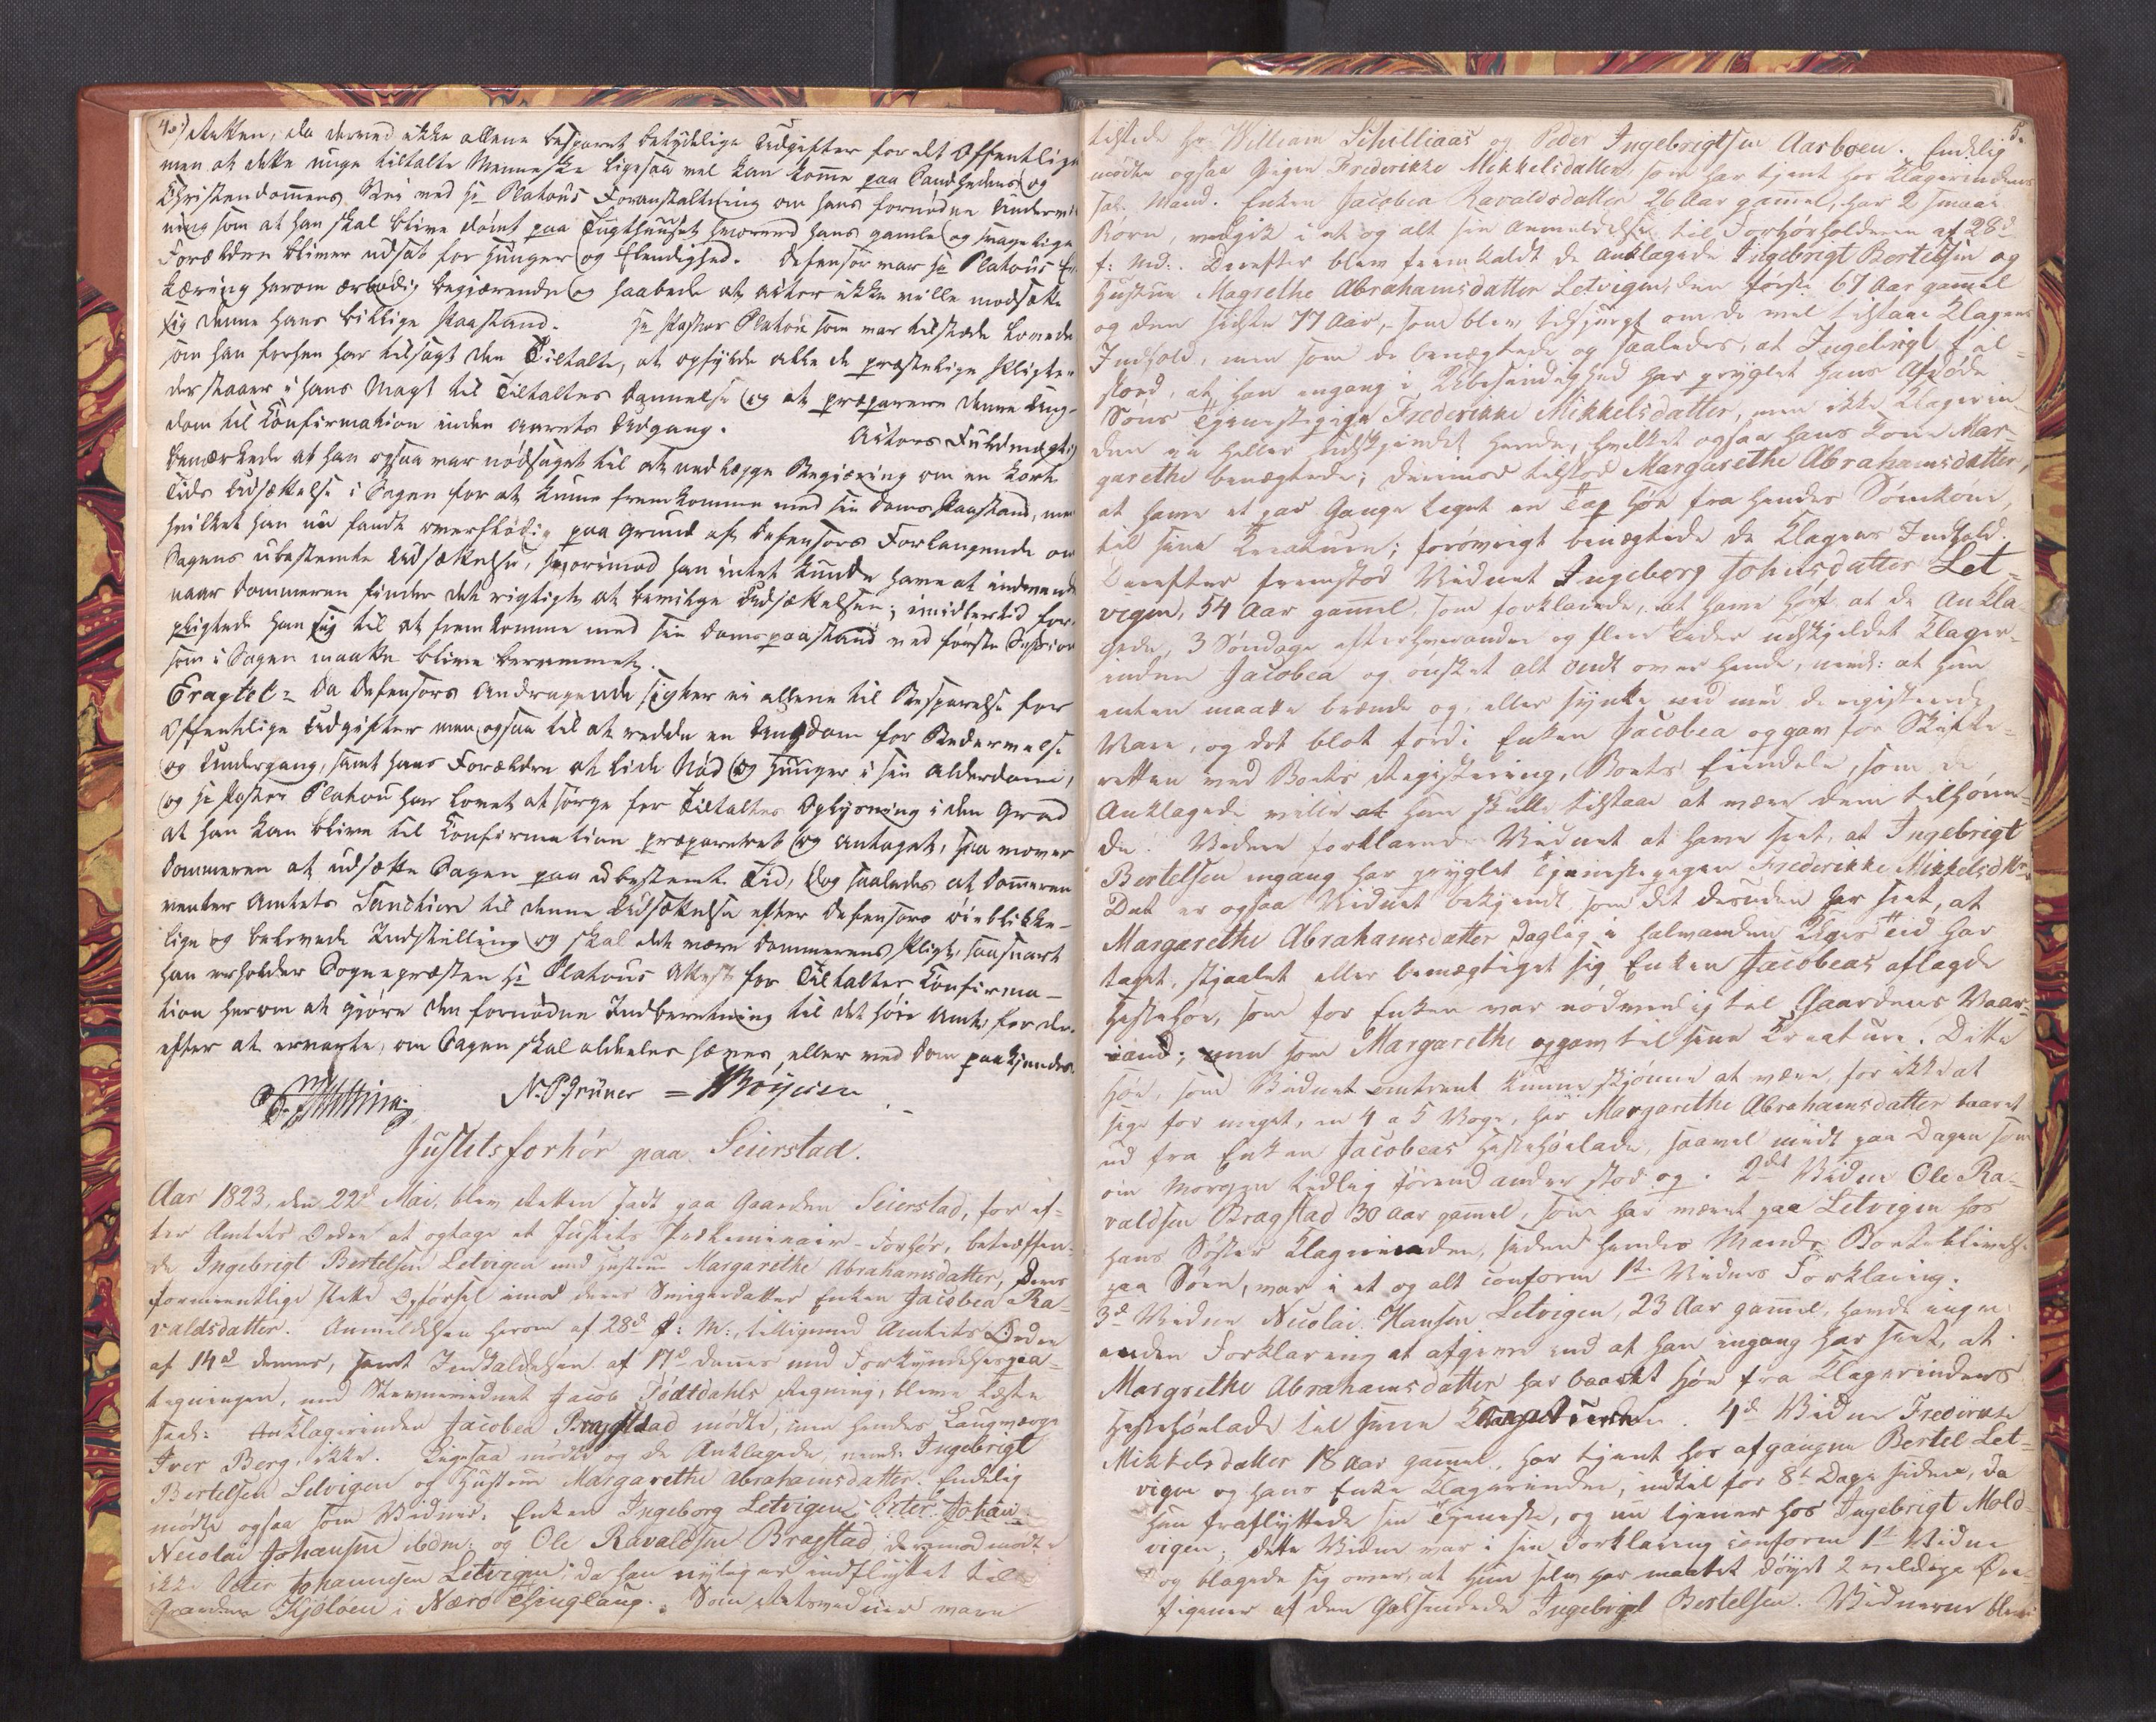 4.) Retten, da derved ikke allene besparet betydelige Udgifter for det Offentlige
men at dette unge tiltalte Menneske ligesaa vel kan komme paa Sandhedens og
Christendommens Vei ved Hr Platous Foranstaltning om hans fornødne Underviis
ning som at han skal blive dømt paa Tugthuuset hvorved hans gamle og svagelige
Forældre bliver udsat for Hunger og Elendighed. Defensor var Hr Platous Er
klæring herom ærbødig begjærende og haabede at Actor ikke ville modsætte
sig denne hans billige Paastand. Hr Pastor Platou som var tilstæde lovede
som han forhen har tilsagt den Tiltalte, at opfylde alle de præstelige Pligter
der staaer i hans Magt til Tiltaltes Dannelse og at præparere denne Ung-
dom til Confirmation inden Aarets Udgang. Actors Fuldmægtig
bemærkede at han ogsaa var nødsaget til at nedlægge Begjæring om en kort
Tids Udsættelse i Sagen for at kunne fremkomme med sin Doms Paastand, men
hvilket han nu fandt overflødig paa Grund af Defensors Forlangende om
Sagens ubestemte Udsættelse, hvorimod han intet kunde have at indvende
naar Dommeren finder det rigtigt at bevilge Udsættelsen; imidlertid for-
pligtede han sig til at fremkomme med sin Doms paastand ved første Session
som i Sagen maatte blive berammet.
Eragtet = Da Defensors Andragende sigter ei allene til Besparelse for
Offentlige Udgifter men ogsaa til at redde en Ungdom for Bedervelse
og Undergang, samt hans Forældre at lide Nød og Hunger i sin Alderdom,
og Hr Pastor Platou har lovet at sørge for Tiltaltes Oplysning i den Grad
at han kan blive til Confirmation præpareret og antaget, saa vover
Dommeren at udsætte Sagen paa ubestemt Tid, dog saaledes at Dommeren
venter Amtets Sanction til denne Udsættelse efter Defensors øieblikke-
lige og belovede Indstilling og skal det være Dommerens Pligt, saasnart
han erholder Sognepræsten Hr Platous Attest for Tiltaltes Confirma-
tion herom at gjøre den fornødne Indberetning til det høie Amt, for der-
efter at erwarte, om Sagen skal aldeles hæves eller ved Dom paakjendes.
N. P. Grüner = Böyesen
Justitsforhör paa Seierstad.
Aar 1823, den 22d Mai, blev Retten sadt paa Gaarden Seierstad, for ef-
ter Amtets Orden at optage et Justits Preliminair-Forhør, betræffen-
de Ingebrigt Bertelsen Letvigen med Hustrue Margarethe Abrahamsdatter, deres
formeentlige slette Opførsel imod deres Svigerdatter Enken Jacobea Ra-
valdsdatter. Anmeldelsen herom af 28d f: M:, tilligemed Amtets Orden
af 14de dennes, samt Indkaldelsen af 17d dennes med Forkyndelsespaa-
tegningen, med Stevnevidnet Jacob Tödtdahls Regning, bleve læste
saal: Anklagerinden Jacobea Bragstad mødte, men hendes Laugværge
Iver Berg, ikke. Ligesaa mødte og de Anklagede, nemt. Ingebrigt
Bertelsen Letvigen og Hustrue Margarethe Abrahamsdatter. Endelig
mødte ogsaa som Vidner: Enken Ingeborg Letvigen, Peter Johan
Nicolai Johansen ibdm: og Ole Ravaldsen Bragstad, derimod mødte
ikke Peter Johannesen Letvigen, da han nyligen indflyttet til
Gaarden Kjölöen i Næro Thinglaug. Som Retsvidner vare
5.
tilstede Hr William Schilliaas og Peder Ingebrigtsen Aarböen. Endelig
mødte ogsaa Pigen Frederikke Mikkelsdatter, som har tjent hos Klagerindens
sal. Mand. Enken Jacobea Ravaldsdatter 26 Aar gamel, har 2 smaae
Børn, vedgik i et og alt sin Anmeldelse til Forhörholderen af 28d
f: Md:. Derefter blev fremkaldt de Anklagede Ingebrigt Bertelsen og
Hustrue Magrethe Abrahamsdatter Letvigen, den første 67 Aar gamel
og den sidste 77 Aar, - som blev tilspurgt om de vil tilstaae Klagens
Indhold, men som de benægtede og saaledes, at Ingebrigt til-
stod, at han engang i Ubesindighed har pryglet hans Afdöde
Søns Tjenestepige Frederikke Mikkelsdatter, men ikke Klagerin-
den ei heller udskjendet hende, hvilket ogsaa hans Kone Mar-
garethe benægtede; derimod tilstod Margarethe Abrahamsdatter,
at have et par Gange taget en Tap Høe fra hendes Sønekone,
til sine Kreature; forøvrigt benægtede de Klagens Indhold.
Derefter fremstod Vidnet Ingeborg Johnsdatter Let-
vigen, 54 Aar gamel, som forklarede, at have hørt at de Ankla-
gede, 3 Søndage efterhverandre og flere Tider udskjeldet Klager-
inden Jacobea og ønsket alt ondt over hende, nemt: at hun
enten maatte brænde op, eller synke ned med de registrerede
Vare, og det blot fordi Enken Jacobea opgav for Skifte-
retten ved Boets Registering, Boets Eiendele, som de
Anklagede ville at hun skulle tilstaae at være dem tilhøren-
de. Videre forklarede Vidnet at have seet, at Ingebrigt
Bertelsen engang har pryglet Tjenestepigen Frederikke Mikkelsdtr.
Det er ogsaa Vidnet bekjendt som det desuden har seet, at
Margarethe Abrahamsdatter daglig i halvanden Uges Tid har
taget, stjaalet eller bemægtiget sig Enken Jacobeas aflagde
Hestehøe, som for Enken var nødvendig til Gaardens Vaar-
aand; men som Margarethe opgav til sine Kreature. Dette
Høe, som Vidnet omtrent kunne skjønne at være, for ikke at
sige for meget, en 4 a 5 Voge, har Margarethe Abrahamsdatter baaret
ud fra Enken Jacobeas Hestehøelade, saavel midt paa Dagen som
om Morgen tidlig førend andre stod op. 2det Vidne Ole Ra-
valdsen Bragstad 30 Aar gamel, som har været paa Letvigen hos
hans Søster Klagerinden, siden hendes Mands Borteblivelse
paa Søen, var i et og alt conform 1ste Vidnes Forklaring.
3d Vidne Nicolai Hansen Letvigen, 23 Aar gamel, havde ingen
anden Forklaring at afgive end at han engang har seet, at
Margrethe Abrahamsdatter har baaret Høe fra Klagerindens
Hestehøelade til sine Kreature. 4d Vidne Frederikke
Mikkelsdatter 18 Aar gamel, har tjent hos afgangne Bertel Let-
vigen og hans Enke Klagerinden, indtil for 8t Dage siden, da
hun fraflyttede sin Tjeneste, og nu tjener hos Ingebrigt Mold-
vigen; dette Vidne var i sin Forklaring conform 1st Vidne
og klagede sig over, at hun selv har maattet døyet 2 voldige Øre-
figener af den Galsindede Ingebrigt Bertelsen. Vidnerne blev